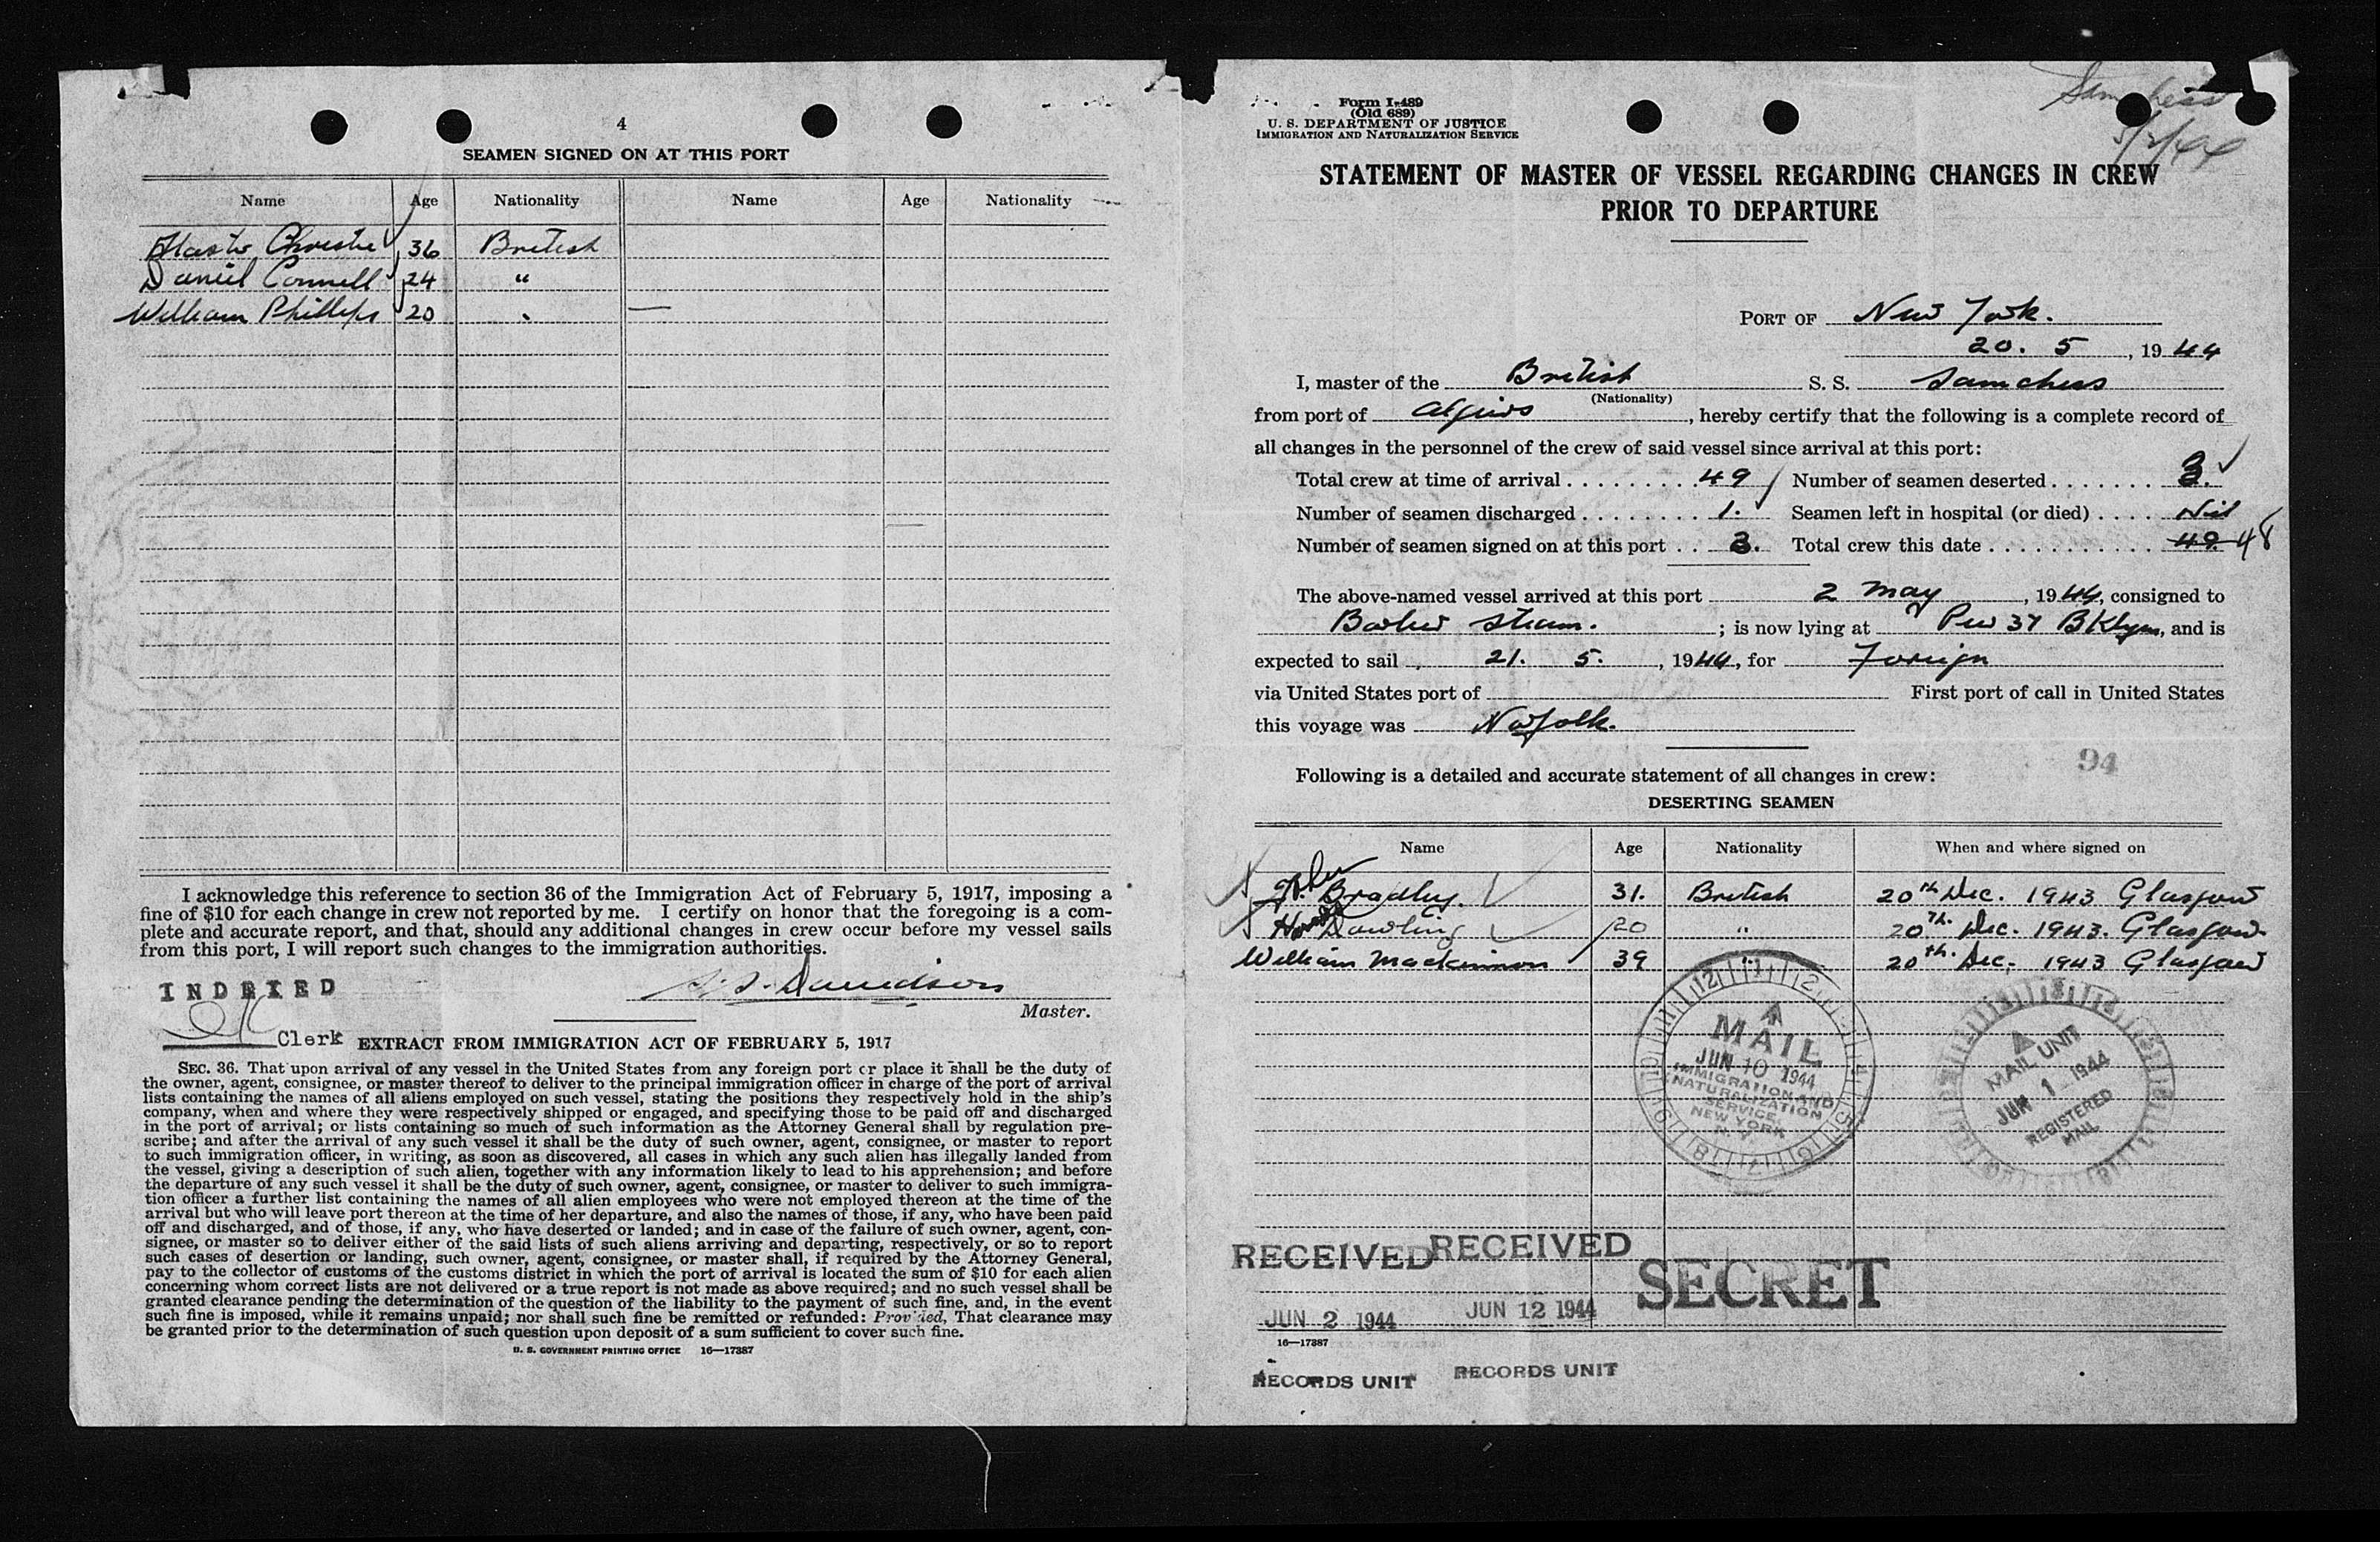 4
SEAMEN SIGNED ON AT THIS PORT
Name Age Nationality Name Age Nationality
Christie 36 British
Daniel Connell 24 "
William Phillips 20 "
I acknowledge this reference to section 36 of the Immigration Act of February 5, 1917, imposing a
fine of $10 for each change in crew not reported by me. I certify on honor that the foregoing is a com-
plete and accurate report, and that, should any additional changes in crew occur before my vessel sails
from this port, I will report such changes to the immigration authorities.
INDEXED
Davidson
Master.
Clerk
EXTRACT FROM IMMIGRATION ACT OF FEBRUARY 5, 1917
SEC. 36. That upon arrival of any vessel in the United States from any foreign port or place it shall be the duty of
the owner, agent, consignee, or master thereof to deliver to the principal immigration officer in charge of the port of arrival
lists containing the names of all aliens employed on such vessel, stating the positions they respectively hold in the ship's
company, when and where they were respectively shipped or engaged, and specifying those to be paid off and discharged
in the port of arrival; or lists containing so much of such information as the Attorney General shall by regulation pre-
scribe; and after the arrival of any such vessel it shall be the duty of such owner, agent, consignee, or master to report
to such immigration officer, in writing, as soon as discovered, all cases in which any such alien has illegally landed from
the vessel, giving a description of such alien, together with any information likely to lead to his apprehension; and before
the departure of any such vessel it shall be the duty of such owner, agent, consignee, or master to deliver to such immigra-
tion officer a further list containing the names of all alien employees who were not employed thereon at the time of the
arrival but who will leave port thereon at the time of her departure, and also the names of those, if any, who have been paid
off and discharged, and of those, if any, who have deserted or landed; and in case of the failure of such owner, agent, con-
signee, or master so to deliver either of the said lists of such aliens arriving and departing, respectively, or so to report
such cases of desertion or landing, such owner, agent, consignee, or master shall, if required by the Attorney General,
pay to the collector of customs of the customs district in which the port of arrival is located the sum of $10 for each alien
concerning whom correct lists are not delivered or a true report is not made as above required; and no such vessel shall be
granted clearance pending the determination of the question of the liability to the payment of such fine, and, in the event
such fine is imposed, while it remains unpaid; nor shall such fine be remitted or refunded: Provided, That clearance may
be granted prior to the determination of such question upon deposit of a sum sufficient to cover such fine.
U. S. GOVERNMENT PRINTING OFFICE 16—17387
Form I-489
(Old 689)
U. S. DEPARTMENT OF JUSTICE
IMMIGRATION AND NATURALIZATION SERVICE
Samchess
5/2/44
STATEMENT OF MASTER OF VESSEL REGARDING CHANGES IN CREW
PRIOR TO DEPARTURE
PORT OF New York.
20. 5, 1944
I, master of the British S. S. Samchess
(Nationality)
from port of Algiers, hereby certify that the following is a complete record of
all changes in the personnel of the crew of said vessel since arrival at this port:
Total crew at time of arrival 49 Number of seamen deserted 3.
Number of seamen discharged 1. Seamen left in hospital (or died) Nil
Number of seamen signed on at this port 3. Total crew this date 49 48
The above-named vessel arrived at this port 2 May, 1944, consigned to
Barber Steam.; is now lying at Pier 37 BKlyn, and is
expected to sail 21. 5., 1944, for Foreign
via United States port of First port of call in United States
this voyage was Norfolk.
94
Following is a detailed and accurate statement of all changes in crew:
DESERTING SEAMEN
Name Age Nationality When and where signed on
John Bradley. 31. British 20th Dec. 1943 Glasgow
Dowling 20 " 20th. Dec. 1943. Glasgow.
William Mackinnon 39 " 20th. Dec. 1943 Glasgow
MAIL
JUN 10 1944
IMMIGRATION AND
NATURALIZATION
SERVICE
NEW YORK
N. Y.
MAIL UNIT
JUN 1 1944
REGISTERED
MAIL
RECEIVED RECEIVED
SECRET
JUN 2 1944 JUN 12 1944
16—17387
RECORDS UNIT RECORDS UNIT